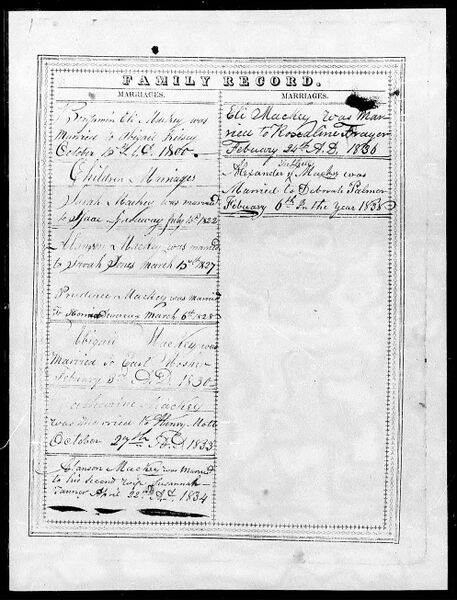 FAMILY RECORD.
MARRIAGES.
Benjamin Eli Mackey was
Married to Abigail
October 15th A.D. 1800.
Children Mariages
Sarah Mackey was married
to Isaac July 15th 1822
Mackey was married
to Sarah Jones March 15th 1827
Prudence Mackey was married
to March 6th 1828
Abigail Mackey was
Married to Earl Mosher
Febuary A.D. 1830
Catherine Mackey
was married to Henry Mott
October 27th A.D. 1833
Alanson Mackey was Married
to his second wife Susannah
Tanner April 22nd A.D. 1834
MARRIAGES.
Eli Mackey was Mar
ried to Rosaline Frayer
Febuary 24th A.D. 1836
Alexander Mackey was
Married to Deborah Palmer
Febuary 6th In the year 1838